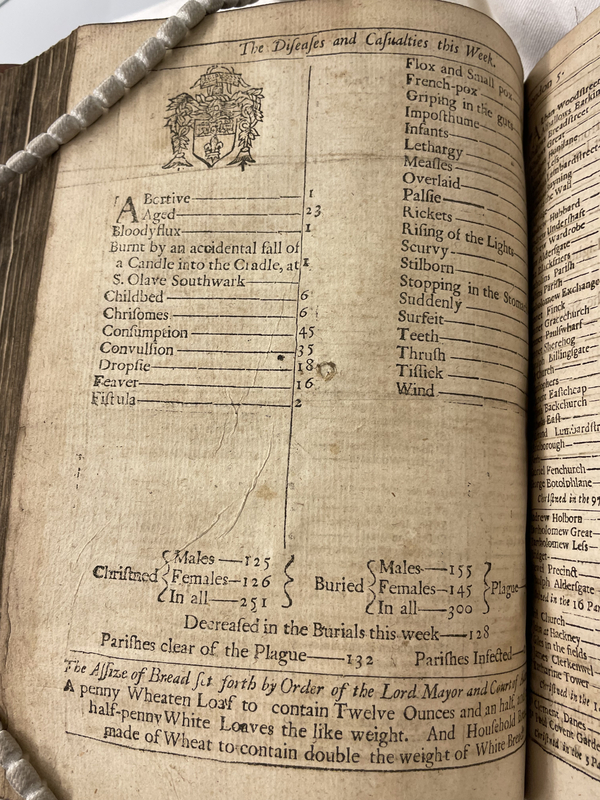 The Diſeaſes and Caſualties this Week.
ABortive — 1
Aged — 23
Bloodyflux — 1
Burnt by an accidental fall of
a Candle into the Cradle, at 1
S. Olave Southwark
Childbed — 6
Chriſomes — 6
Conſumption — 45
Convulſion — 35
Dropſie — 18
Feaver — 16
Fiſtula — 2
Flox and Small pox
French-pox
Griping in the guts
Impoſthume
Infants
Lethargy
Meaſles
Overlaid
Palſie
Rickets
Riſing of the Lights
Scurvy
Stilborn
Stopping in the
Suddenly
Surfeit
Teeth
Thruſh
Tiſſick
Wind
Chriſtned
Males — 125
Females — 126
In all — 251
Buried
Males — 155
Females — 145
In all — 300
Plague
Decreaſed in the Burials this week — 128
Pariſhes clear of the Plague — 132 Pariſhes Infected
The Aſſize of Bread ſet forth by Order of the Lord Mayor and Court of
A penny Wheaten Loaf to contain Twelve Ounces and an half,
half-penny White Loaves the like weight. And Houſhold
made of Wheat to contain double the weight of White
Woodſtreet
Barkin
Breadſtreet
Great
Leſs
Lumbardſtreet
the Wall
Hubbard
Underſhaft
Wardrobe
Alderſgate
Pariſh
Exchange
Finck
Gracechurch
Paulſwharf
Sherehog
Billingſgate
Eaſtcheap
Backchurch
Eaſt
Fenchurch
Botolphlane
Chriſtned in the 97
Andrew Holborn
Bartholomew Great
Bartholomew Leſs
Precinct
Alderſgate
in the 16 Par
Church
at Hackney
in the fields
Clerkenwel
Tower
Danes
Covent Garde